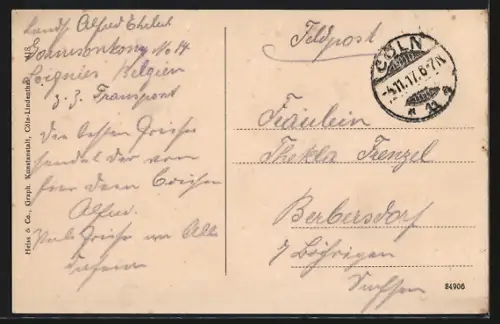 Landst. Alfred
Garnisonkomp No 14
Soignies Belgien
z. Z. Transport
Die besten Grüsse
sendet dir von
hier dein
Alfred.
Viele Grüsse an Alle
Heiss & Co., Graph. Kunstanstalt, Cöln-Lindenthal
Feldpost
CÖLN
-4.11.17. 6-7N.
Fräulein
Thekla Frenzel
Berbersdorf
Sachsen
84906